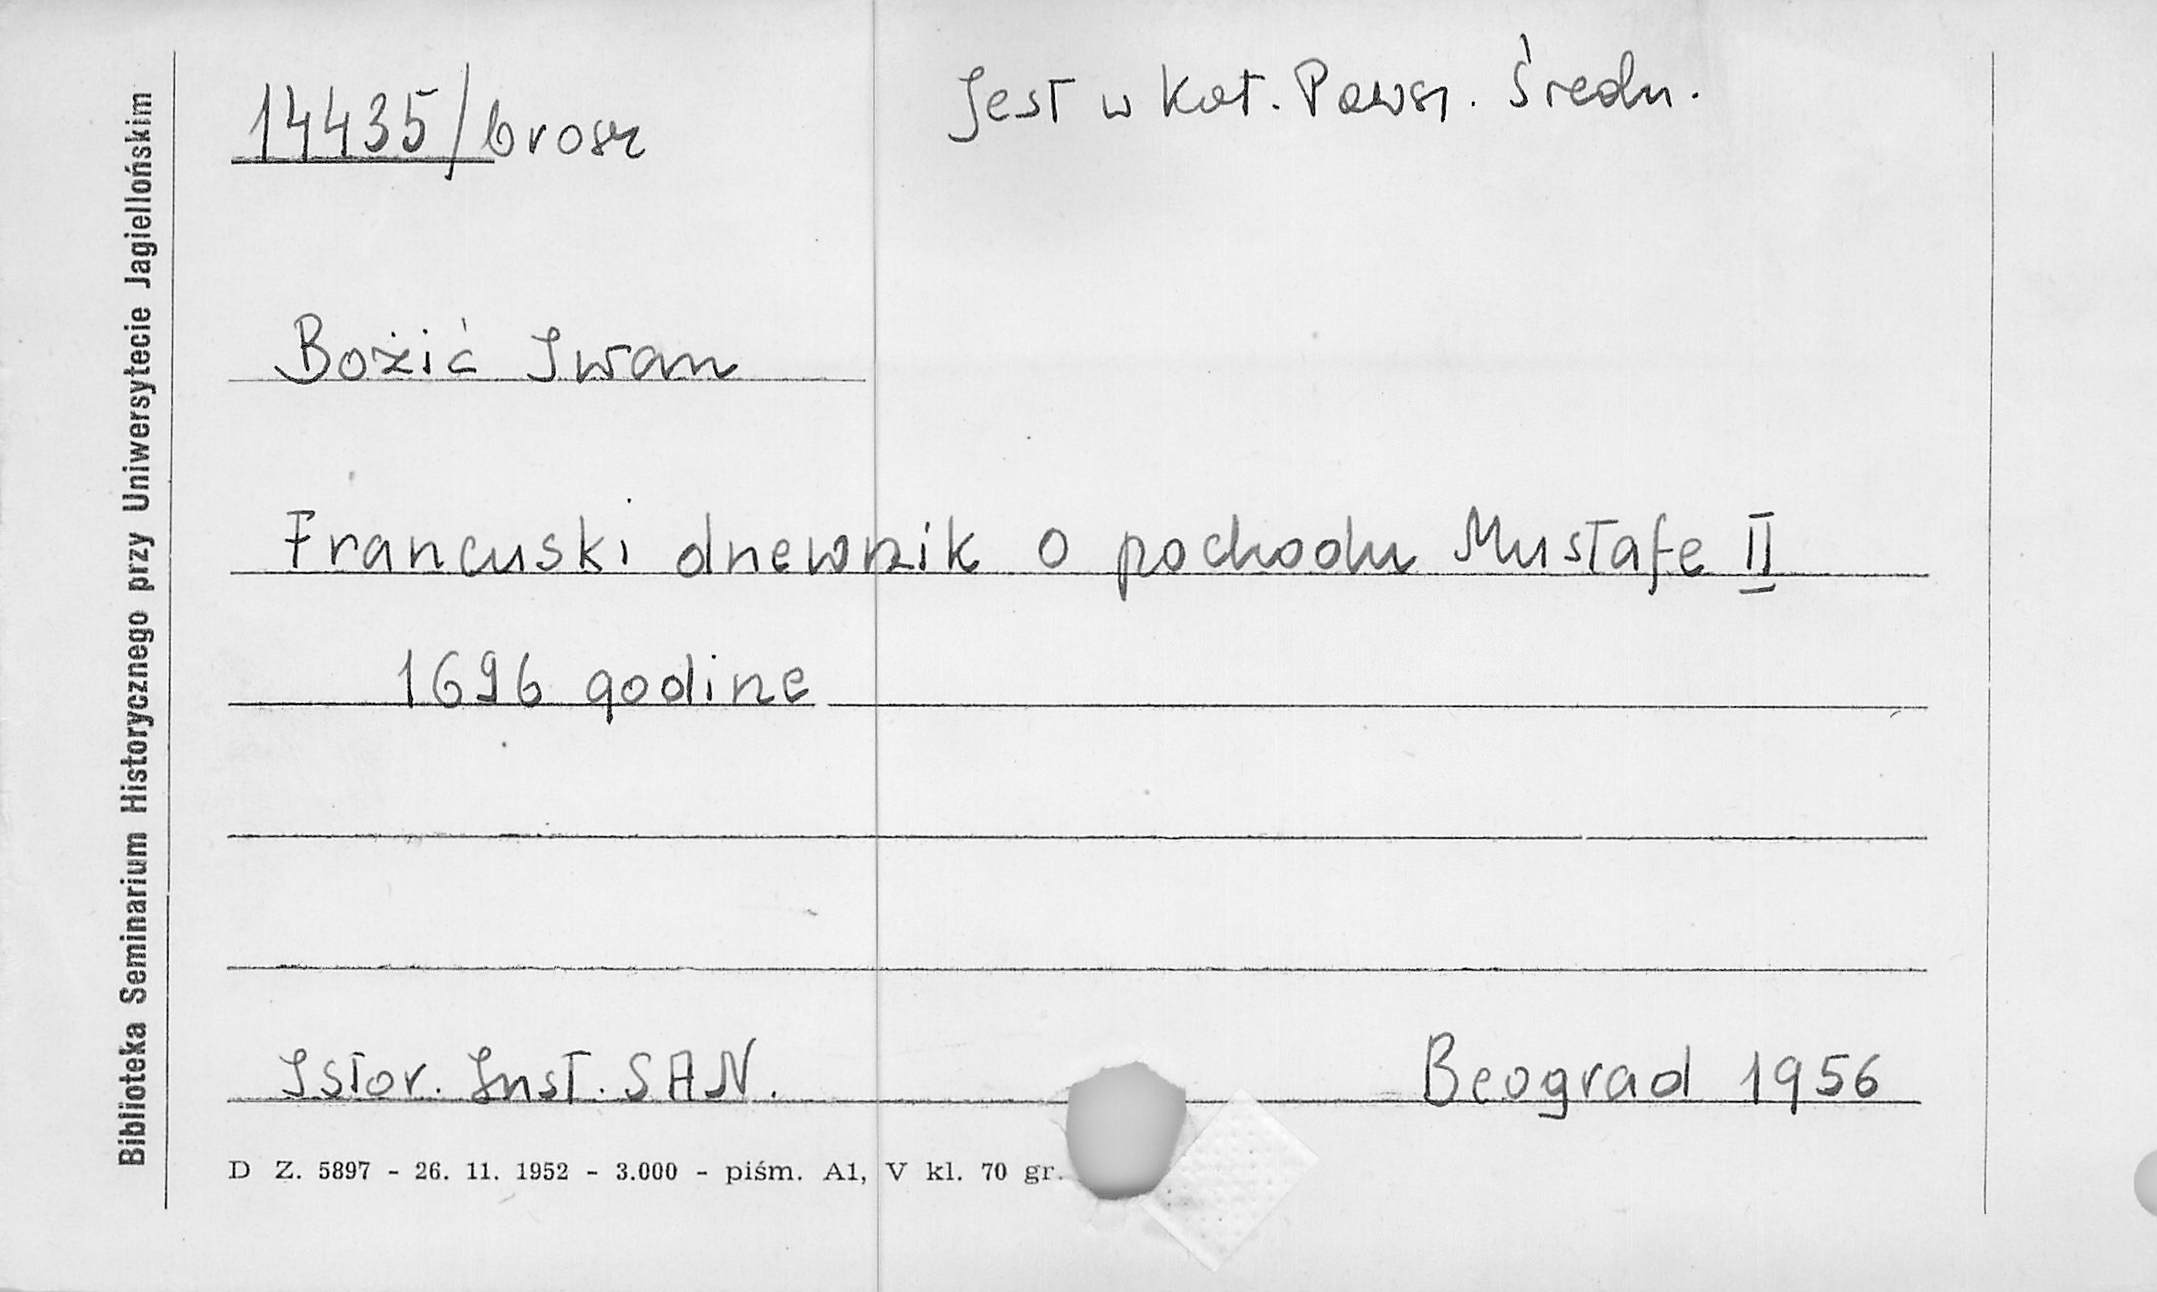 14435/brosz
Jest w Kat. Powsz. Średn.
Božić Iwan
Francuski dnewnik o pochodu Mustafe II
1696 godine
Istor. Inst. SAN.
Beograd 1956
D Z. 5897 - 26. 11. 1952 - 3.000 - piśm. A1, V kl. 70 gr.
Biblioteka Seminarium Historycznego przy Uniwersytecie Jagiellońskim